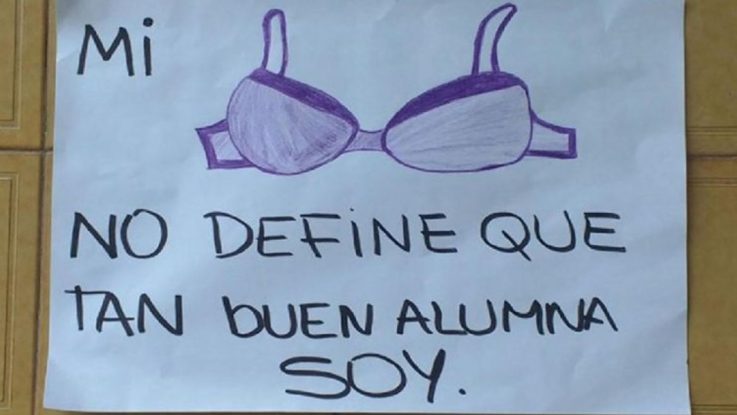 Mi
NO DEFiNE QUE
TAN buEN ALUMNA
SOY.